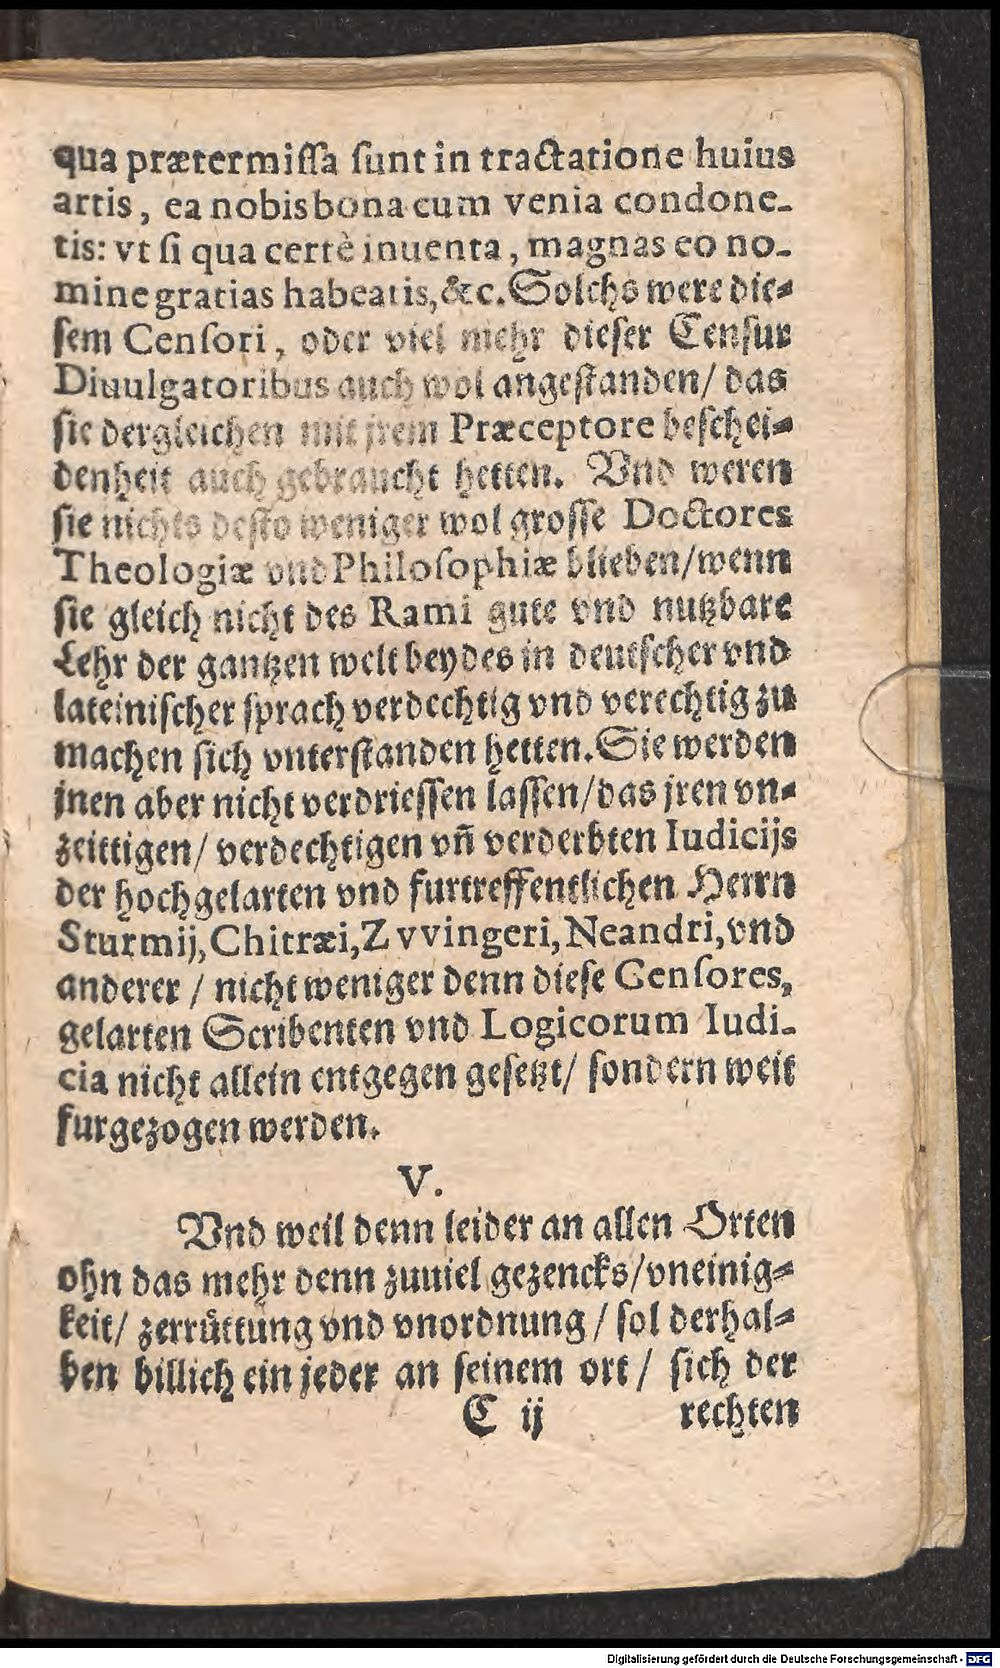 qua prætermiſſa ſunt in tractatione huius
artis, ea nobis bona cum venia condone-
tis: vt ſi qua certè inuenta, magnas eo no-
mine gratias habeatis, &c. Solchs were die-
ſem Cenſori, oder viel mehr dieſer Cenſur
Diuulgatoribus auch wol angeſtanden/ das
ſie dergleichen mit jrem Præceptore beſchei-
denheit auch gebraucht hetten. Vnd weren
ſie nichts deſto weniger wol groſſe Doctores
Theologiæ vnd Philoſophiæ blieben/wenn
ſie gleich nicht des Rami gute vnd nutzbare
Lehr der gantzen welt beydes in deutſcher vnd
lateiniſcher ſprach verdechtig vnd verechtig zu
machen ſich vnterſtanden hetten. Sie werden
jnen aber nicht verdrieſſen laſſen/das jren vn-
zeittigen/ verdechtigen vñ verderbten Iudicijs
der hochgelarten vnd furtreffentlichen Herrn
Sturmij, Chitræi, Zvvingeri, Neandri, vnd
anderer / nicht weniger denn dieſe Cenſores,
gelarten Scribenten vnd Logicorum Iudi-
cia nicht allein entgegen geſetzt/ ſondern weit
furgezogen werden.
V.
Vnd weil denn leider an allen Orten
ohn das mehr denn zuuiel gezencks/vneinig-
keit/ zerrüttung vnd vnordnung / ſol derhal-
ben billich ein jeder an ſeinem ort / ſich der
C ij rechten
Digitalisierung gefördert durch die Deutsche Forschungsgemeinschaft - DFG